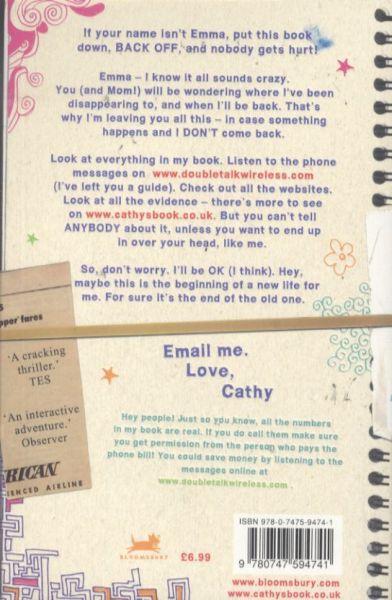 If your name isn't Emma, put this book
down, BACK OFF, and nobody gets hurt!
Emma – I know it all sounds crazy.
You (and Mom!) will be wondering where I've been
disappearing to, and when I'll be back. That's
why I'm leaving you all this – in case something
happens and I DON'T come back.
Look at everything in my book. Listen to the phone
messages on www.doubletalkwireless.com
(I've left you a guide). Check out all the websites.
Look at all the evidence – there's more to see
on www.cathysbook.co.uk. But you can't tell
ANYBODY about it, unless you want to end up
in over your head, like me.
So, don't worry. I'll be OK (I think). Hey,
maybe this is the beginning of a new life for
me. For sure it's the end of the old one.
Email me.
Love,
Cathy
Hey people! Just so you know, all the numbers
in my book are real. If you do call them make sure
you get permission from the person who pays the
phone bill! You could save money by listening to the
messages online at
www.doubletalkwireless.com .
fares
'A cracking
thriller.'
TES
'An interactive
adventure.'
Observer
RICAN
IENCED AIRLINE
BLOOMSBURY
£6.99
ISBN 978-0-7475-9474-1
9 780747 594741
www.bloomsbury.com
www.cathysbook.co.uk